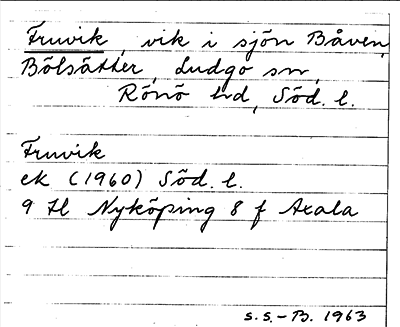 Fruvik, vik i sjön Båven,
Bölsätter, Ludgo sn,
Rönö hd, Söd. l.
Fruvik
ek (1960) Söd. l.
9 H Nyköping 8 f Axala
S.S.-B. 1963